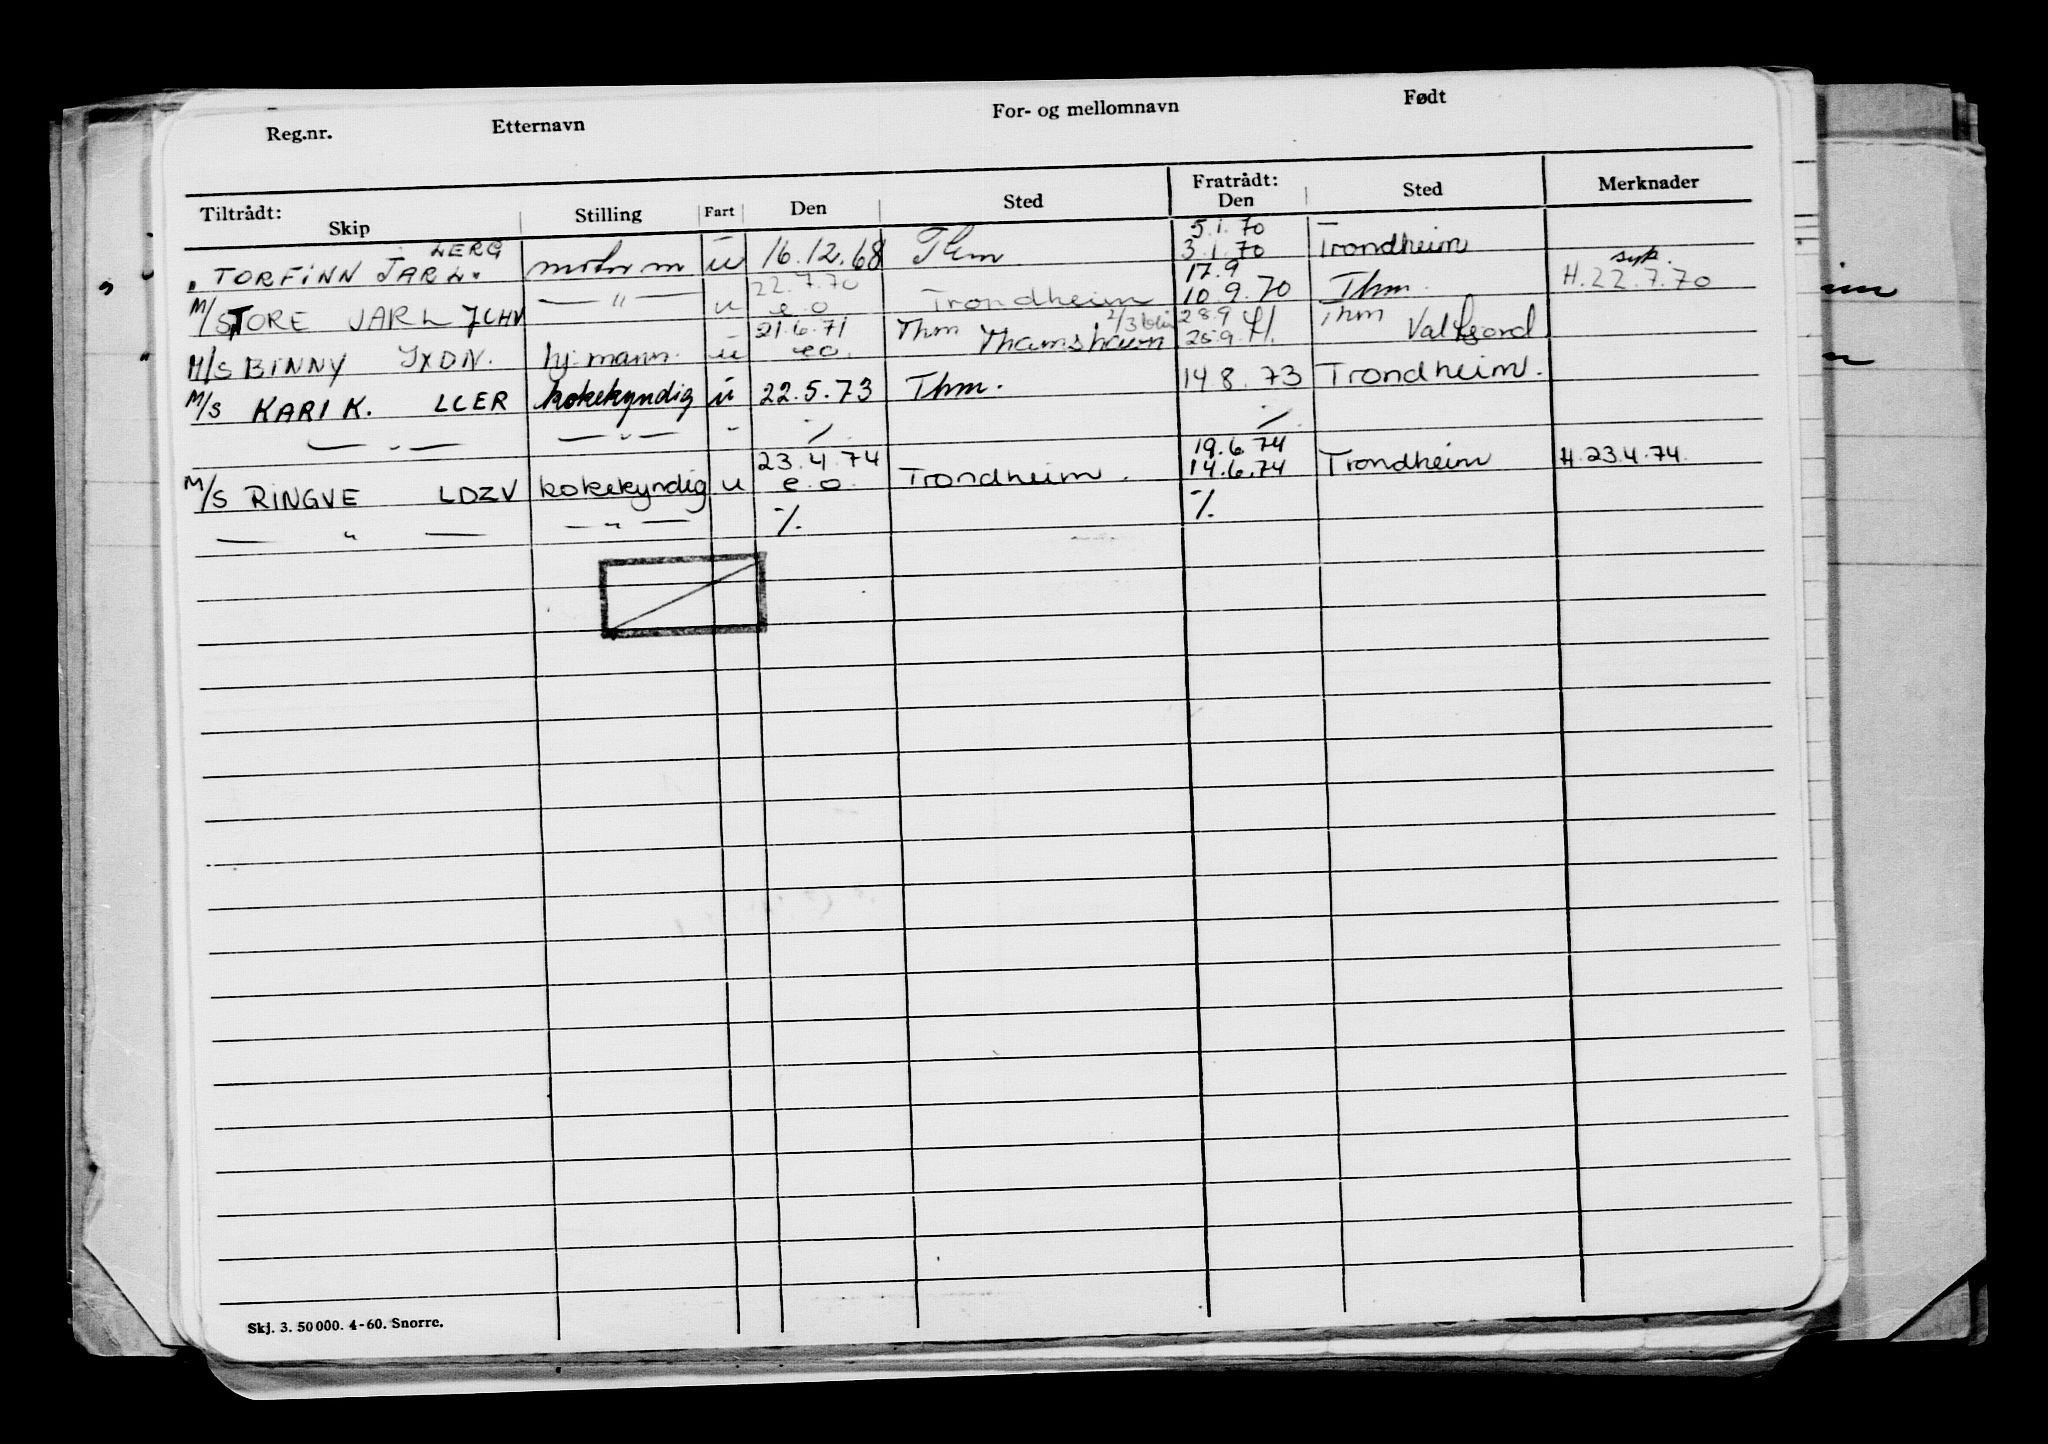 Reg.nr. Etternavn For- og mellomnavn Født
Tiltrådt: Fratrådt:
Skip Stilling Fart Den Sted Den Sted Merknader
LERG 5.1.70
" TORFINN JARL. motorm u 16.12.68 Thm 3.1.70 Trondheim
22.7.70 17.9 syk.
M/S TORE JARL JCHV — " — u e.o Trondheim 10.9.70 Thm. H.22.7.70
21.6.71 Thm 28.9 Thm
M/S BINNY JXDN. hj.mann. u e.o. Thamshavn 25.9. 71. Valfjord
M/S KARI K. LCER kokekyndig u 22.5.73 Thm. 14 8.73 Trondheim.
— " — — " — " ./. ./.
23.4.74 19.6.74
M/S RINGVE LDZV kokekyndig u e.o. Trondheim. 14.6.74 Trondheim H.23.4.74.
— " — — " — ./. ./.
Skj. 3. 50 000. 4-60. Snorre.